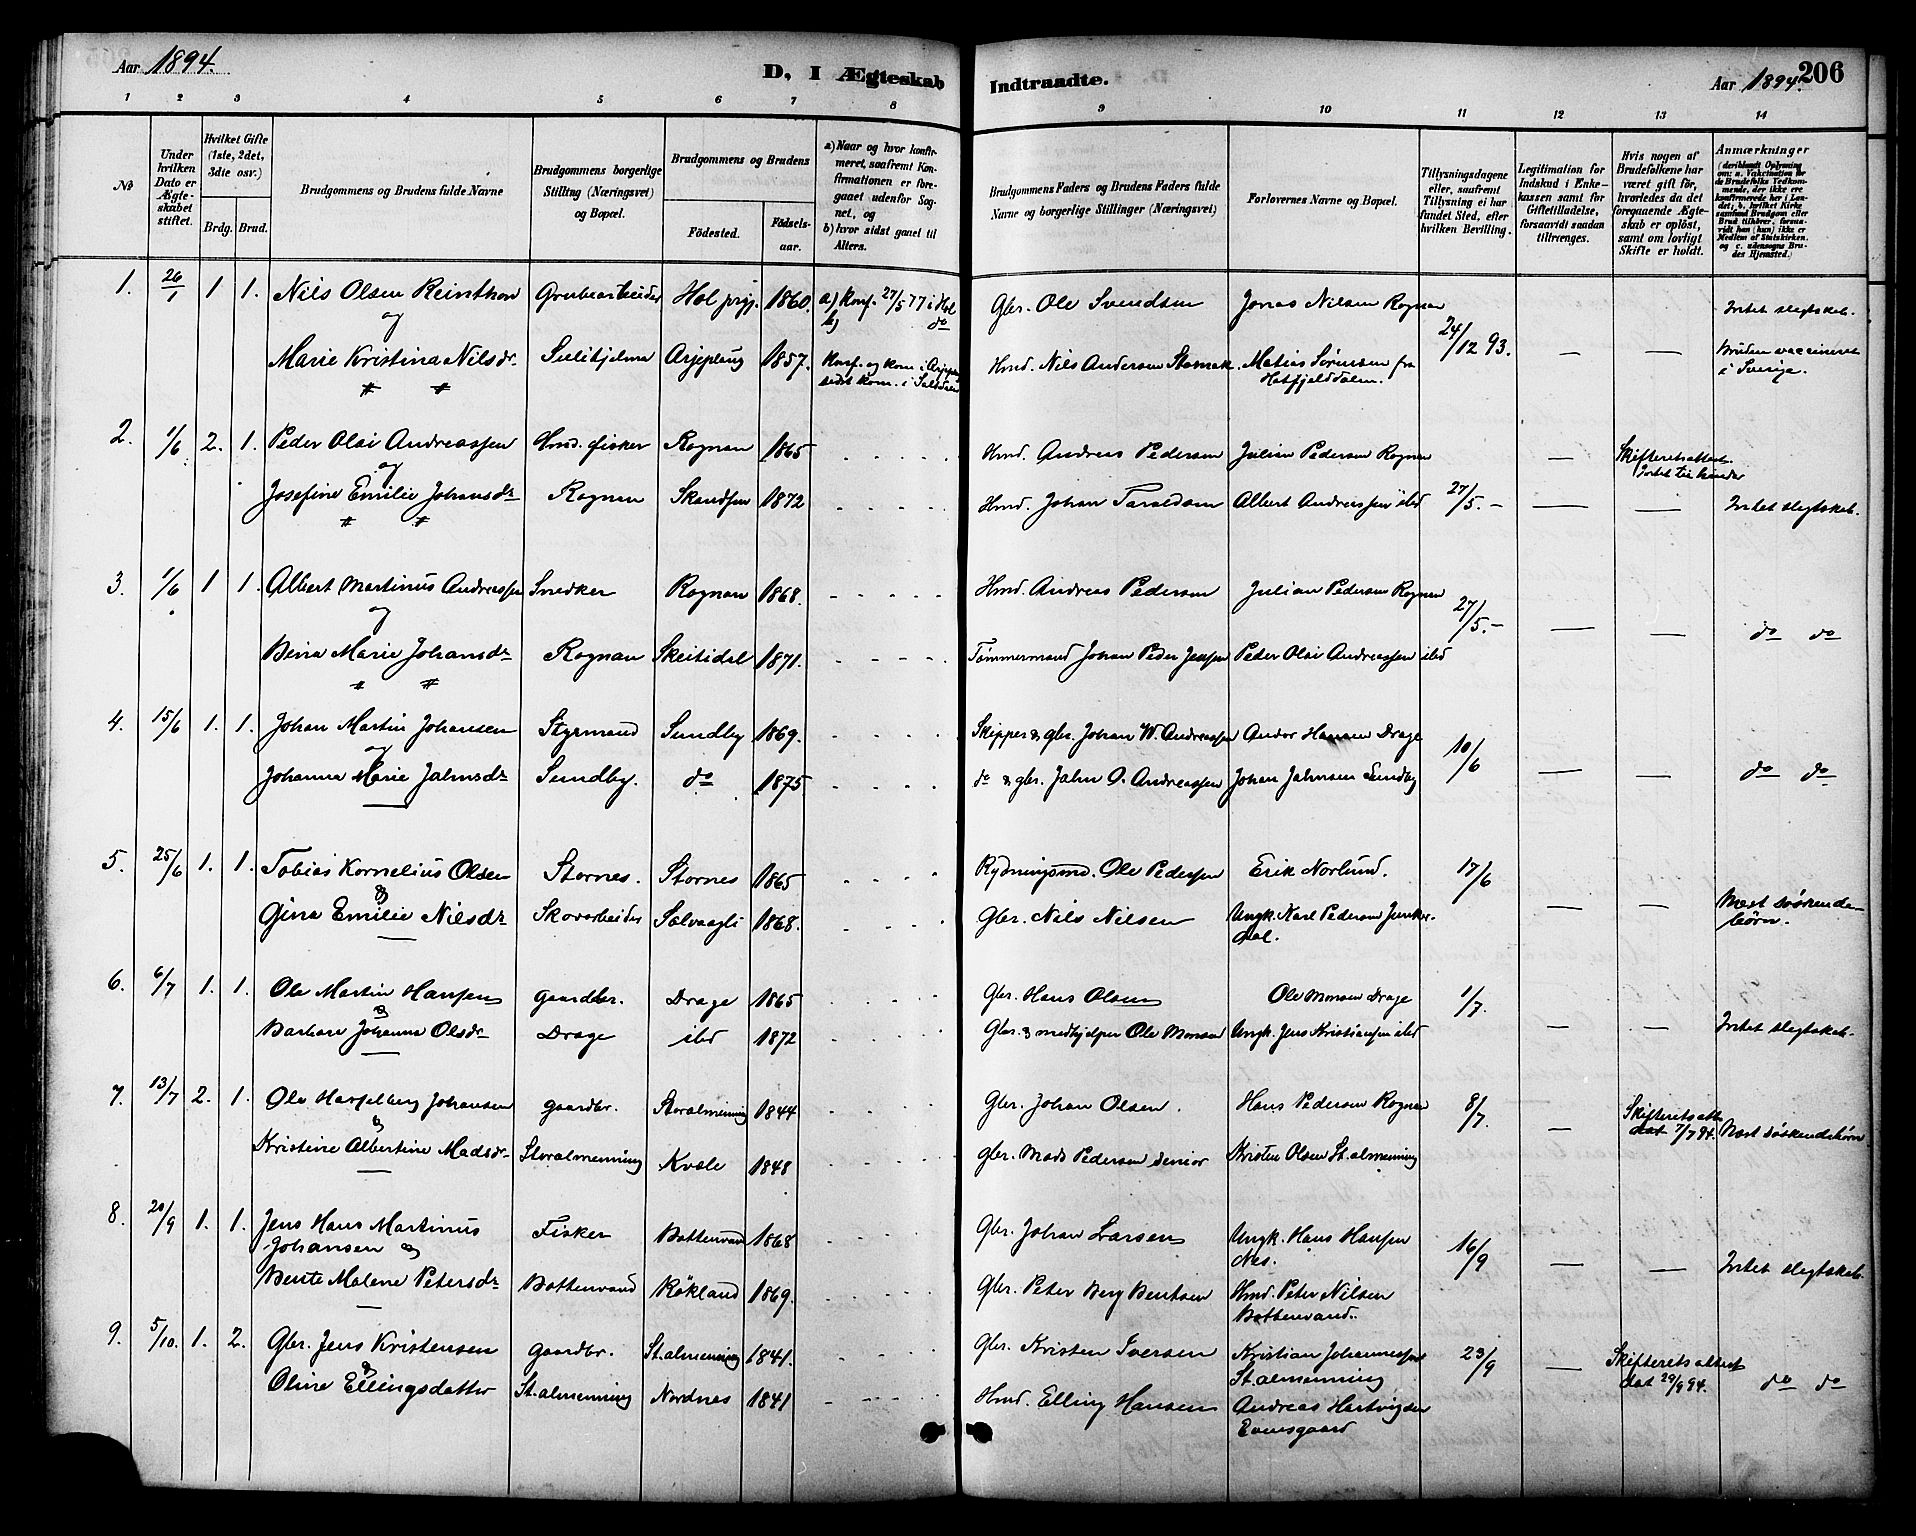 Aar 1894.
D, I Ægteskab
Indtraadte.
Aar 1894.
206
1 2 3 4 5 6 7 8 9 10 11 12 13 14
No
Under hvilken Dato er Ægteskabet stiftet.
Hvilket Gifte (1ste, 2det, 3die osv.)
Brdg. Brud.
Brudgommens og Brudens fulde Navne
Brudgommens borgerlige Stilling (Næringsvei) og Bopæl.
Brudgommens og Brudens
Fødested.
Fødselsaar.
a) Naar og hvor konfirmeret, saafremt Konfirmationen er foregaaet udenfor Sognet, og
b) hvor sidst gaaet til Alters.
Brudgommens Faders og Brudens Faders fulde Navne og borgerlige Stillinger (Næringsvei)
Forlovernes Navne og Bopæl.
Tillysningsdagene eller, saafremt Tillysning ei har fundet Sted, efter hvilken Bevilling.
Legitimation for Indskud i Enkekassen samt for Giftetilladelse, forsaavidt saadan tiltrænges.
Hvis nogen af Brudefolkene har været gift før, hvorledes da det foregaaende Ægteskab er opløst, samt om lovligt Skifte er holdt.
Anmærkninger
1. 26/1 1 1. Nils Olsen Reinthon Grubearbeider Hol prgj. 1860. a) Konf. 27/5 77 i Hol b) do Gbr. Ole Svendsen Jonas Nilsen Rognan 24/12 93. Intet slegtskab.
og
Marie Kristina Nilsdr Sulitjelma Arjeplaug 1857. Konf. og kom. i Arjeplaug sidst kom. i Saltdalen Hmd. Nils Andersen Matias Sørensen fra Hatfjelddalen. — — Bruden vaccineret i Sverige.
2. 1/6 2. 1. Peder Olai Andreassen Hmd. fisker Rognan 1865 Hmd. Andreas Pedersen Julian Pedersen Rognan 27/5.- — Skifteretsattest Intet til hinder
og
Josefine Emilie Johansdr Rognan Skandsen 1872 Hmd. Johan Taraldsen Albert Andreassen ibd — — Intet slegtskab.
3. 1/6 1 1. Albert Martinus Andreassen Snedker Rognan 1868. Hmd. Andreas Pedersen Julian Pedersen Rognan 27/5.-
og
Bina Marie Johansdr Rognan Skeitidal 1871. Tømmermand Johan Peder Jensen Peder Olai Andreassen ibd — — do do
4. 15/6 1. 1. Johan Martin Johansen Styrmand Sundby 1869. Skipper & gbr. Johan W. Andreassen Andor Hansen Drage 10/6
og
Johanna Marie Jahnsdr Sundby. do 1875 do & gbr. Jahn O. Andreassen Johan Jahnsen Sundby — — do do
5. 25/6 1. 1. Tobias Kornelius Olsen Stornes. Stornes 1865 Rydningsmd. Ole Pedersen Erik Norlund. 17/6
&
Gina Emilie Nilsdr Skovarbeider Salvaagli 1868. Gbr. Nils Nilsen Ungk. Karl Pedersen — — Næst søskendebørn.
6. 6/7 1. 1. Ole Martin Hansen gaardbr. Drage 1865 Gbr. Hans Olsen Ole Monsen Drage 1/7.
&
Barbara Johanna Olsdr Drage ibd 1872 Gbr. & medhjelper Ole Monsen Ungk. Jens Kristiansen ibd — — Intet slegtskab.
7. 13/7 2. 1. Ole Hasselberg Johansen gaardbr. Storalmenning 1844 Gbr. Johan Olsen. Hans Pedersen Rognan 8/7. — Skifteretsattest dat 7/7 94. Næst søskendebørn
&
Kristine Albertine Madsdr Storalmenning Kvæle 1848 gbr. Mads Pedersen senior Kristen Olsen St.almenning
8. 20/9 1. 1. Jens Hans Martinus Johansen & Fisker Bottenvand 1868 Gbr. Johan Larsen Ungk. Hans Hansen Nes. 16/9
Bente Malene Petersdr Bottenvand Røkland 1869. Gbr. Peter Berg Bentsen Hmd. Peter Nilsen Bottenvand. — — Intet slegtskab.
9. 5/10. 1. 2. Gbr. Jens Kristensen gaardbr. St.almenning 1841. Gbr. Kristen Iversen Kristian Johannessen St.almenning 23/9 — Skifteretsattest dat 29/9 94. do do
&
Oline Ellingsdatter St.almenning Nordnes 1841 Hmd. Elling Hansen Andreas Hartvigsen Evensgaard